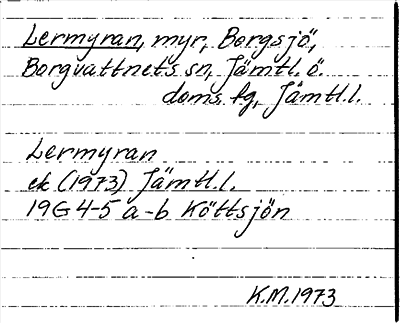 Lermyran, myr, Borgsjö,
Borgvattnets sn, Jämtl. ö.
doms. fg, Jämtl.l.
Lermyran
ek (1973) Jämtl.l.
19G 4-5 a-b Köttsjön
K.M. 1973